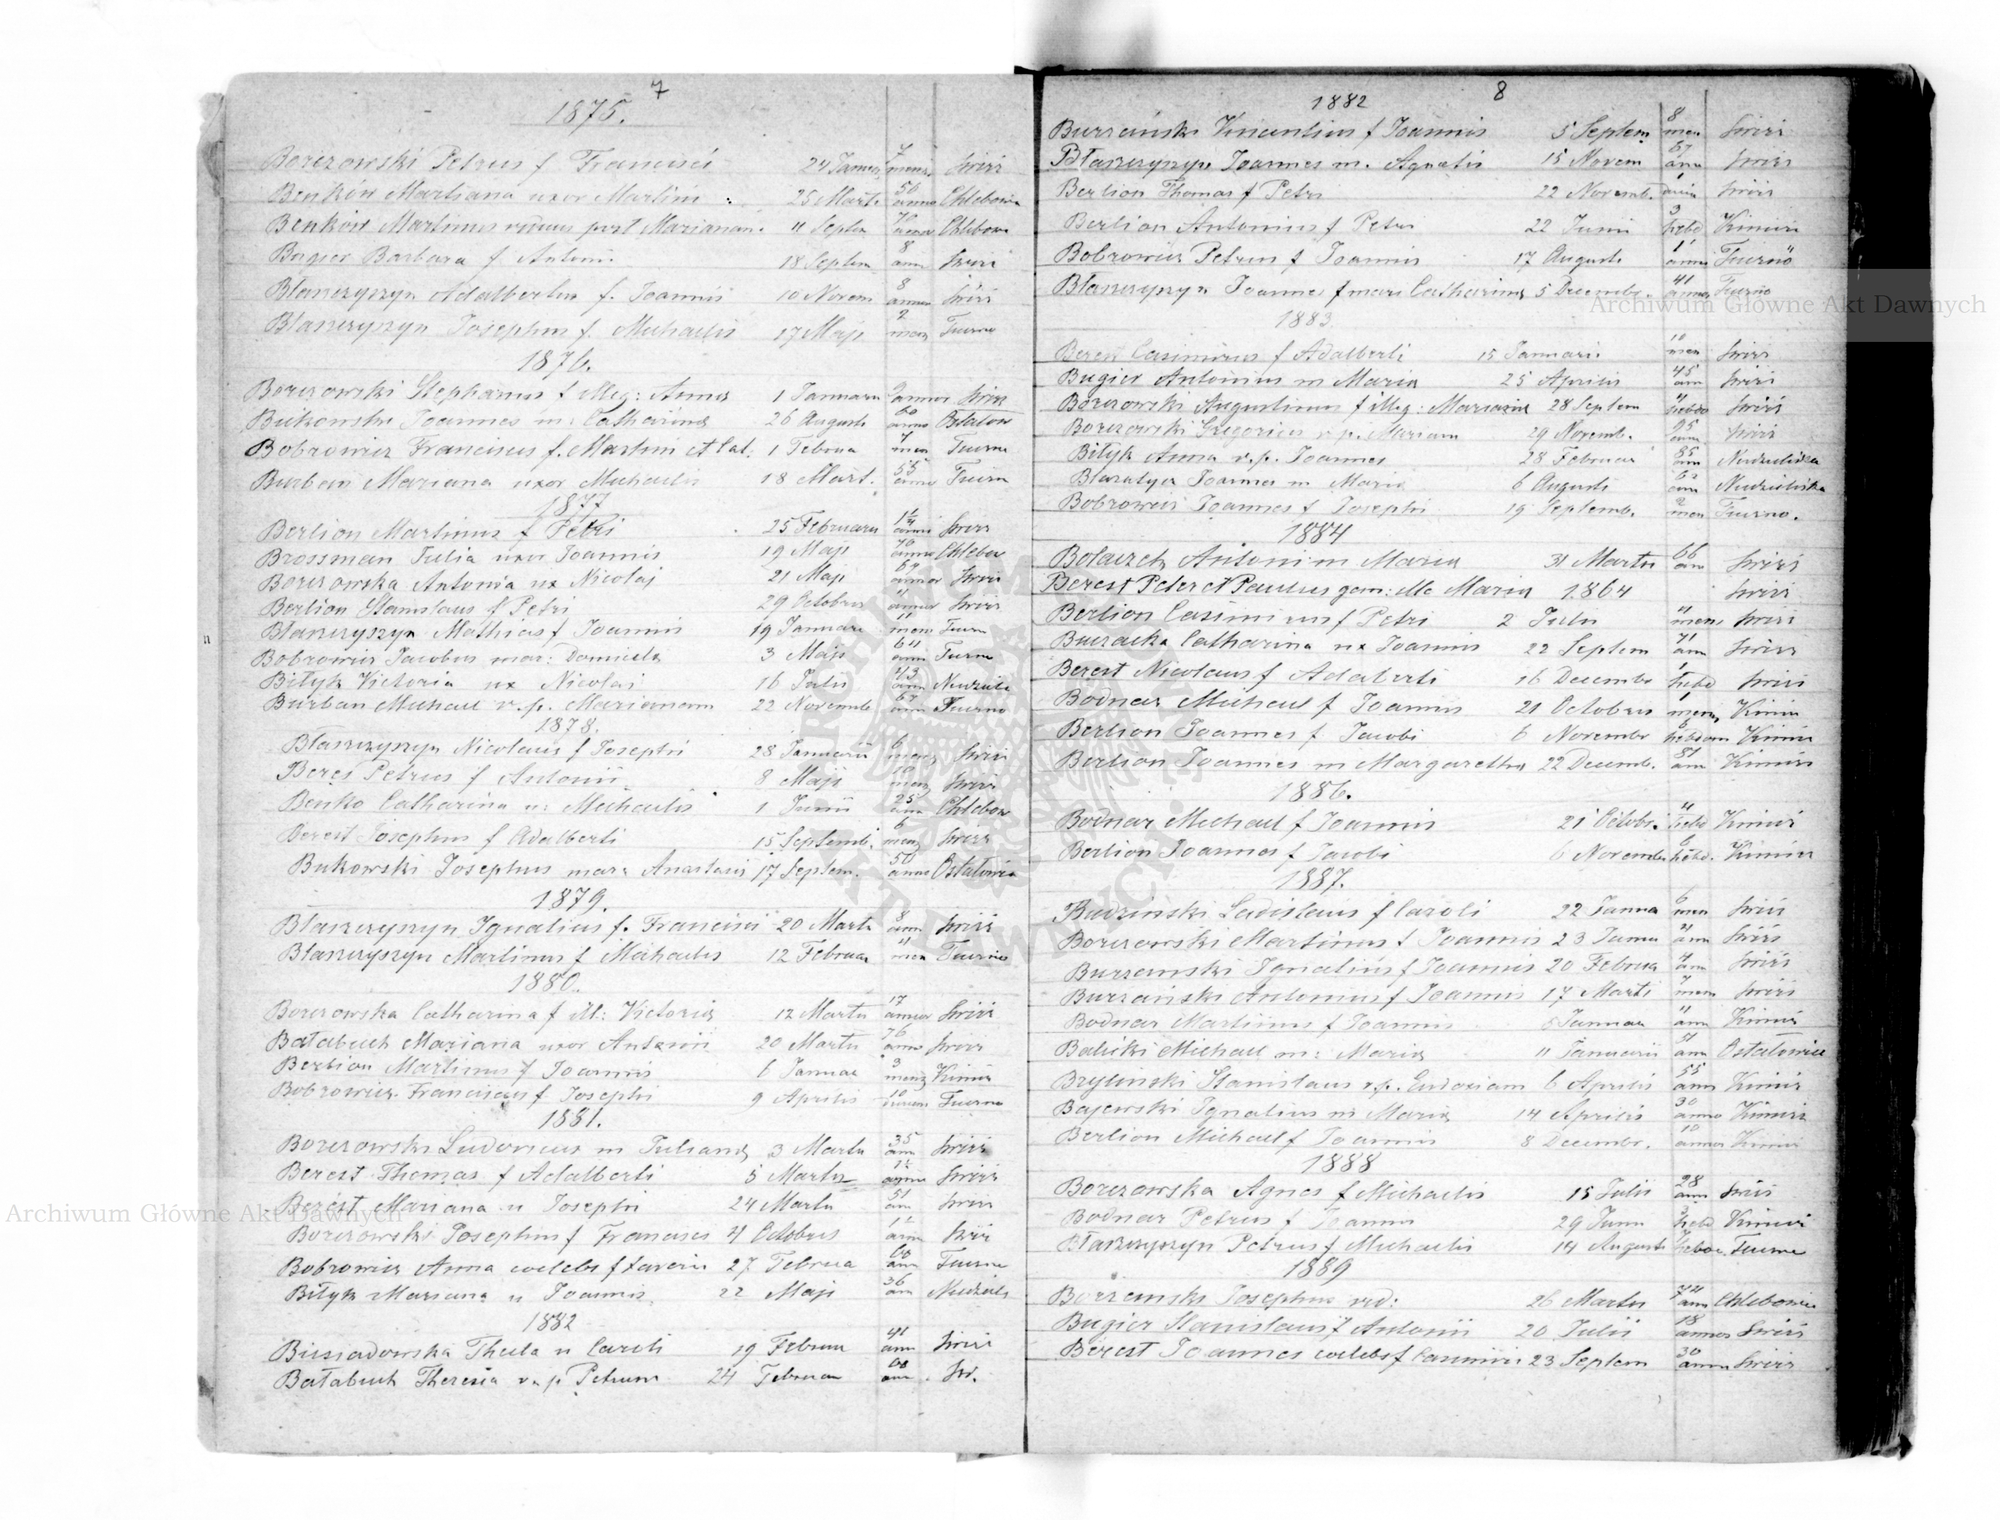 7
1875.
Borezowski Petrus f Francisci 24 Januar 7 mens Swirz
Benkow Marianna uxor Martini 25 Marti 50 annor Chlebowice
Benkow Martinus viduus post Mariannam 11 Septem 70 annor Chlebowi
Bugier Barbara f Antonii 18 Septem 8 ann Swirz
Błaszczyszyn Adalbertus f. Joannis 10 Novem 8 annor Swirz
Błaszczyszyn Josephus f. Michaelis 17 Maji 2 men Tuczno
1876.
Borezowski Stephanus f illeg: Anna 1 Januarii 2 annor Swirz
Bukowski Joannes m: Catharina 26 Augusti 60 annor
Bobrowicz Franciscus f. Martini et Cat: 1 Februa 7 men Tuczna
Burban Mariana uxor Michaelis 18 Mart. 55 annor Tuczn
1877
Berlion Martinus f Petri 25 Februarii 1 1/4 anni Swirz
Brossman Julia uxor Joannis 19 Maji 70 annor Chlebow
Borezowska Antonia ux Nicolaj 21 Maji annor Swirz
Berlion Stanislaus f Petri 29 Octobris 4 annor Swirz
Błaszczyszyn Mathias f Joannis 19 Januari 11 mens Tuczn
Bobrowicz Jacobus mar: Daniela 3 Maji 64 anni Tuczna
Bityk Victoria ux Nicolai 16 Julii 43 ann
Burban Michael v.p. Mariannam 22 Novemb 67 ann Tuczno
1878.
Błaszczyszyn Nicolaus f Josephi 28 Januarii 6 mens Swirz
Beres Petrus f Antonii 8 Maji 10 mens Swirz
Benko Catharina u: Michaelis 1 Junii 25 ann Chlebow
Berest Josephus f Adalberti 15 Septemb. 6 mens Swirz
Bukowski Josephus mar: Anastasia 17 Septem. 50 annor Ostalowice
1879.
Błaszczyszyn Ignatius f. Francisci 20 Marti 8 ann Swirz
Błaszczyszyn Martinus f Michaelis 12 Februar 11 men Tuczno
1880.
Borezowska Catharina f M: Victoria 12 Martii 17 annor Swirz
Batabuch Mariana uxor Antonii 20 Martii 76 anno Swirz
Berlion Martinus f Joannis 6 Januar 3 mens Kimirz
Bobrowicz Franciscus f Josephi 9 Aprilis 10 Tuczno
1881.
Borezowski Ludovicus m Juliana 3 Martii 35 ann Swirz
Berest Thomas f Adalberti 5 Martii 1 1/2 annor Swirz
Berest Mariana u Josephi 24 Martii 51 an Swirz
Borezowski Josephus f Francisci 4 Octobris 1 1/2 ann Swirz
Bobrowicz Anna coelebs f Xaverii 27 Februa 60 an Tuczno
Bityk Mariana u Joannis 22 Maji 36 an
1882
Biesiadowska Thecla u Caroli 19 Februar 41 ann Swirz
Batabuch Theresia v. p Petrum 24 Februar 60 ann Sw.
8
1882
Burzański Vincentius f Joannis 5 Septem 8 men Swirz
Błaszczyszyn Joannes m. Agnetis 15 Novem 67 ann Swirz
Berlion Thomas f Petri 22 Novemb. 1 anni Swirz
Berlion Antonius f Petri 22 Junii 3 hebd Kimirz
Bobrowicz Petrus f Joannis 17 Augusti 1 anni Tuczno
Błaszczyszyn Joannes f mari Catharina 5 Decembr. 41 annor Tuczno
1883
Berest Casimirus f Adalberti 15 Januarii 10 men Swirz
Bugier Antonius m Maria 25 Aprilis 45 ann Swirz
Borezowski Augustinus f illeg: Mariana 28 Septem 11 hebd Swirz
Borezowski Gregorius v.p. Mariam 29 Novemb. 95 ann Swirz
Bityk Anna v.p. Joannes 28 Februar 85 ann Niedzieliska
Joannes m Maria 6 Augusti 62 ann Niedzieliska
Bobrowicz Joannes f Josephi 19 Septemb. 2 men Tuczno.
1884
Antoni m Maria 31 Martii 66 an Swirz
Berest Peter et Paulus gem: Ma Maria 1864 Swirz
Berlion Casimirus f Petri 2 Julii 11 mens Swirz
Buczacka Catharina ux Joannis 22 Septem 71 ann Swirz
Berest Nicolaus f Adalberti 16 Decembr 1 hebd Swirz
Bodnar Michael f Joannis 21 Octobris 1 mens Kimir
Berlion Joannes f Jacobi 6 Novembr 6 hebdom Kimirz
Berlion Joannes m Margaretha 22 Decemb. 81 ann Kimirz
1886.
Bodnar Michael f Joannis 21 Octobr. 4 hebd Kimirz
Berlion Joannes f Jacobi 6 Novembr 6 hebd. Kimirz
1887.
Budzinski Ladislaus f Caroli 22 Janua 6 men Swirz
Borezowski Martinus f Joannis 23 Janu 4 ann Swirz
Burzanski Ignatius f Joannis 20 Februa 4 ann Swirz
Burzański Antonius f Joannis 17 Marti 7 mens Swirz
Bodnar Martinus f Joannis 5 Januar 4 ann Kimirz
Balicki Michael m: Maria 11 Januarii 51 ann Ostalowice
Brylinski Stanislaus v.p. Eudoxiam 6 Aprilis 55 ann Kimirz
Bajewski Ignatius m Maria 14 Aprilis 30 anno Kimirz
Berlion Michael f Joannis 8 Decembr. 10 annor Kimirz
1888
Borezowska Agnes f Michaelis 15 Julii 28 ann Swirz
Bodnar Petrus f Joannis 29 Junii 3 hebd Kimirz
Błaszczyszyn Petrus f Michaelis 14 Augusti 7 hebdo. Tuczno
1889
Borzemski Josephus vid: 26 Martii 74 ann Chlebowice
Bugier Stanislaus f Antonii 20 Julii 18 annor Swirz
Berest Joannes coelebs f Casimiri 23 Septem 30 annor Swirz
Archiwum Główne Akt Dawnych
Archiwum Główne Akt Dawnych